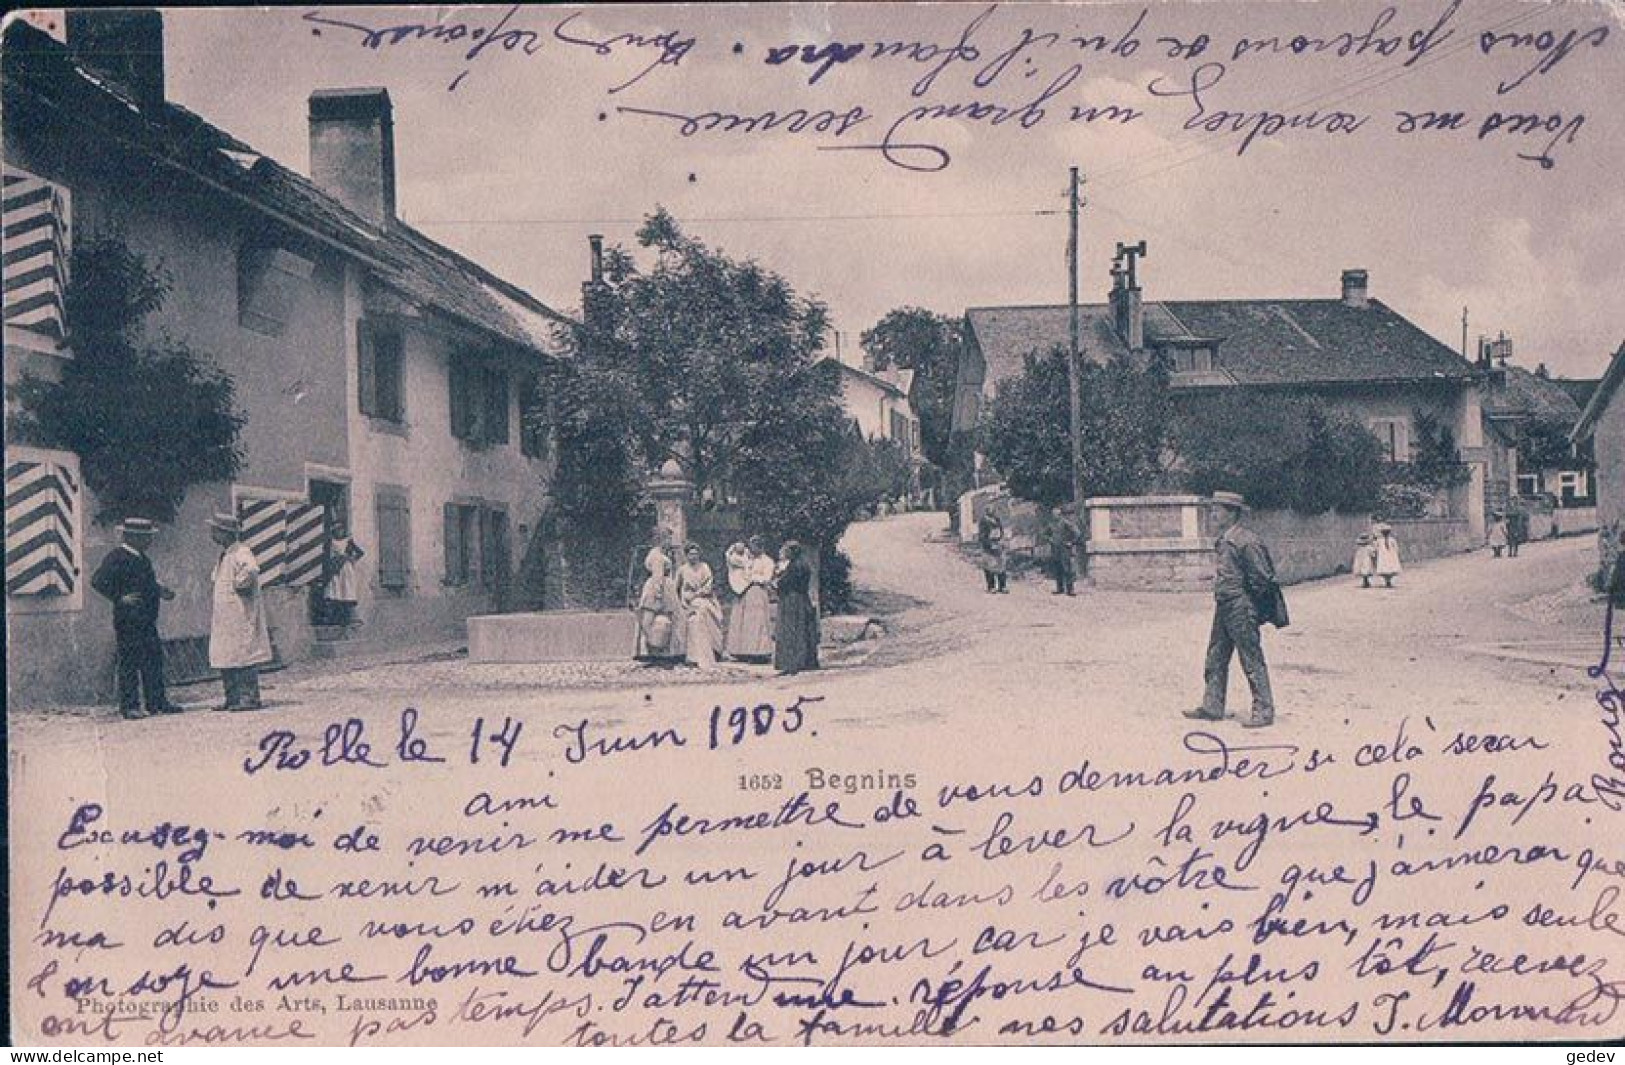 Rolle le 14 Juin 1905.
1652 Begnins
ami
Excusez-moi de venir me permettre de vous demander si celà serai
possible de venir m'aider un jour à lever la vigne, le papa
ma dis que vous étiez en avant dans les vôtre que j'aimerai que
l'on soye une bonne bande un jour, car je vais bien, mais seule
ont avance pas temps. J'attend une réponse au plus tôt, recevez
toutes la famille mes salutations J.
Photographie des Arts, Lausanne
Rouge
Vous me rendrez un grand service.
Nous payerons ce qu'il faudra. réponse.
www.delcampe.net
gedev